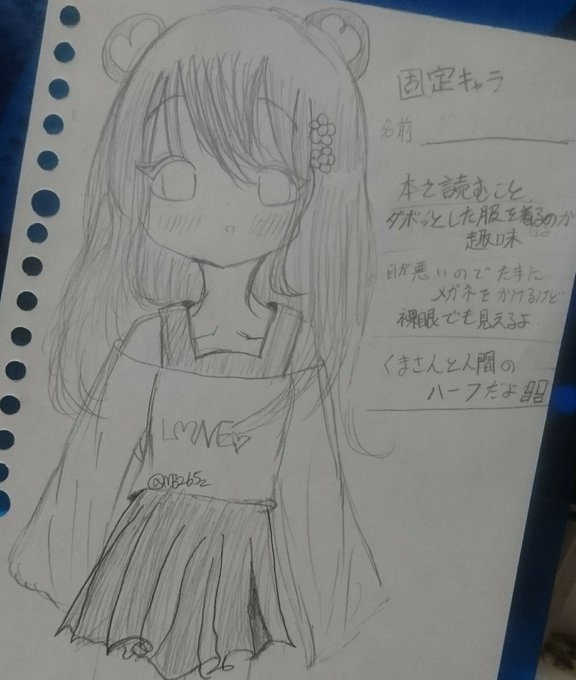 固定キャラ
名前
本を読むこと
ダボッとした服を着るのが
趣味
目が悪いのでたまに
メガネをかけるけど
裸眼でも見えるよ
くまさんと人間の
ハーフだよ
LOVE♡